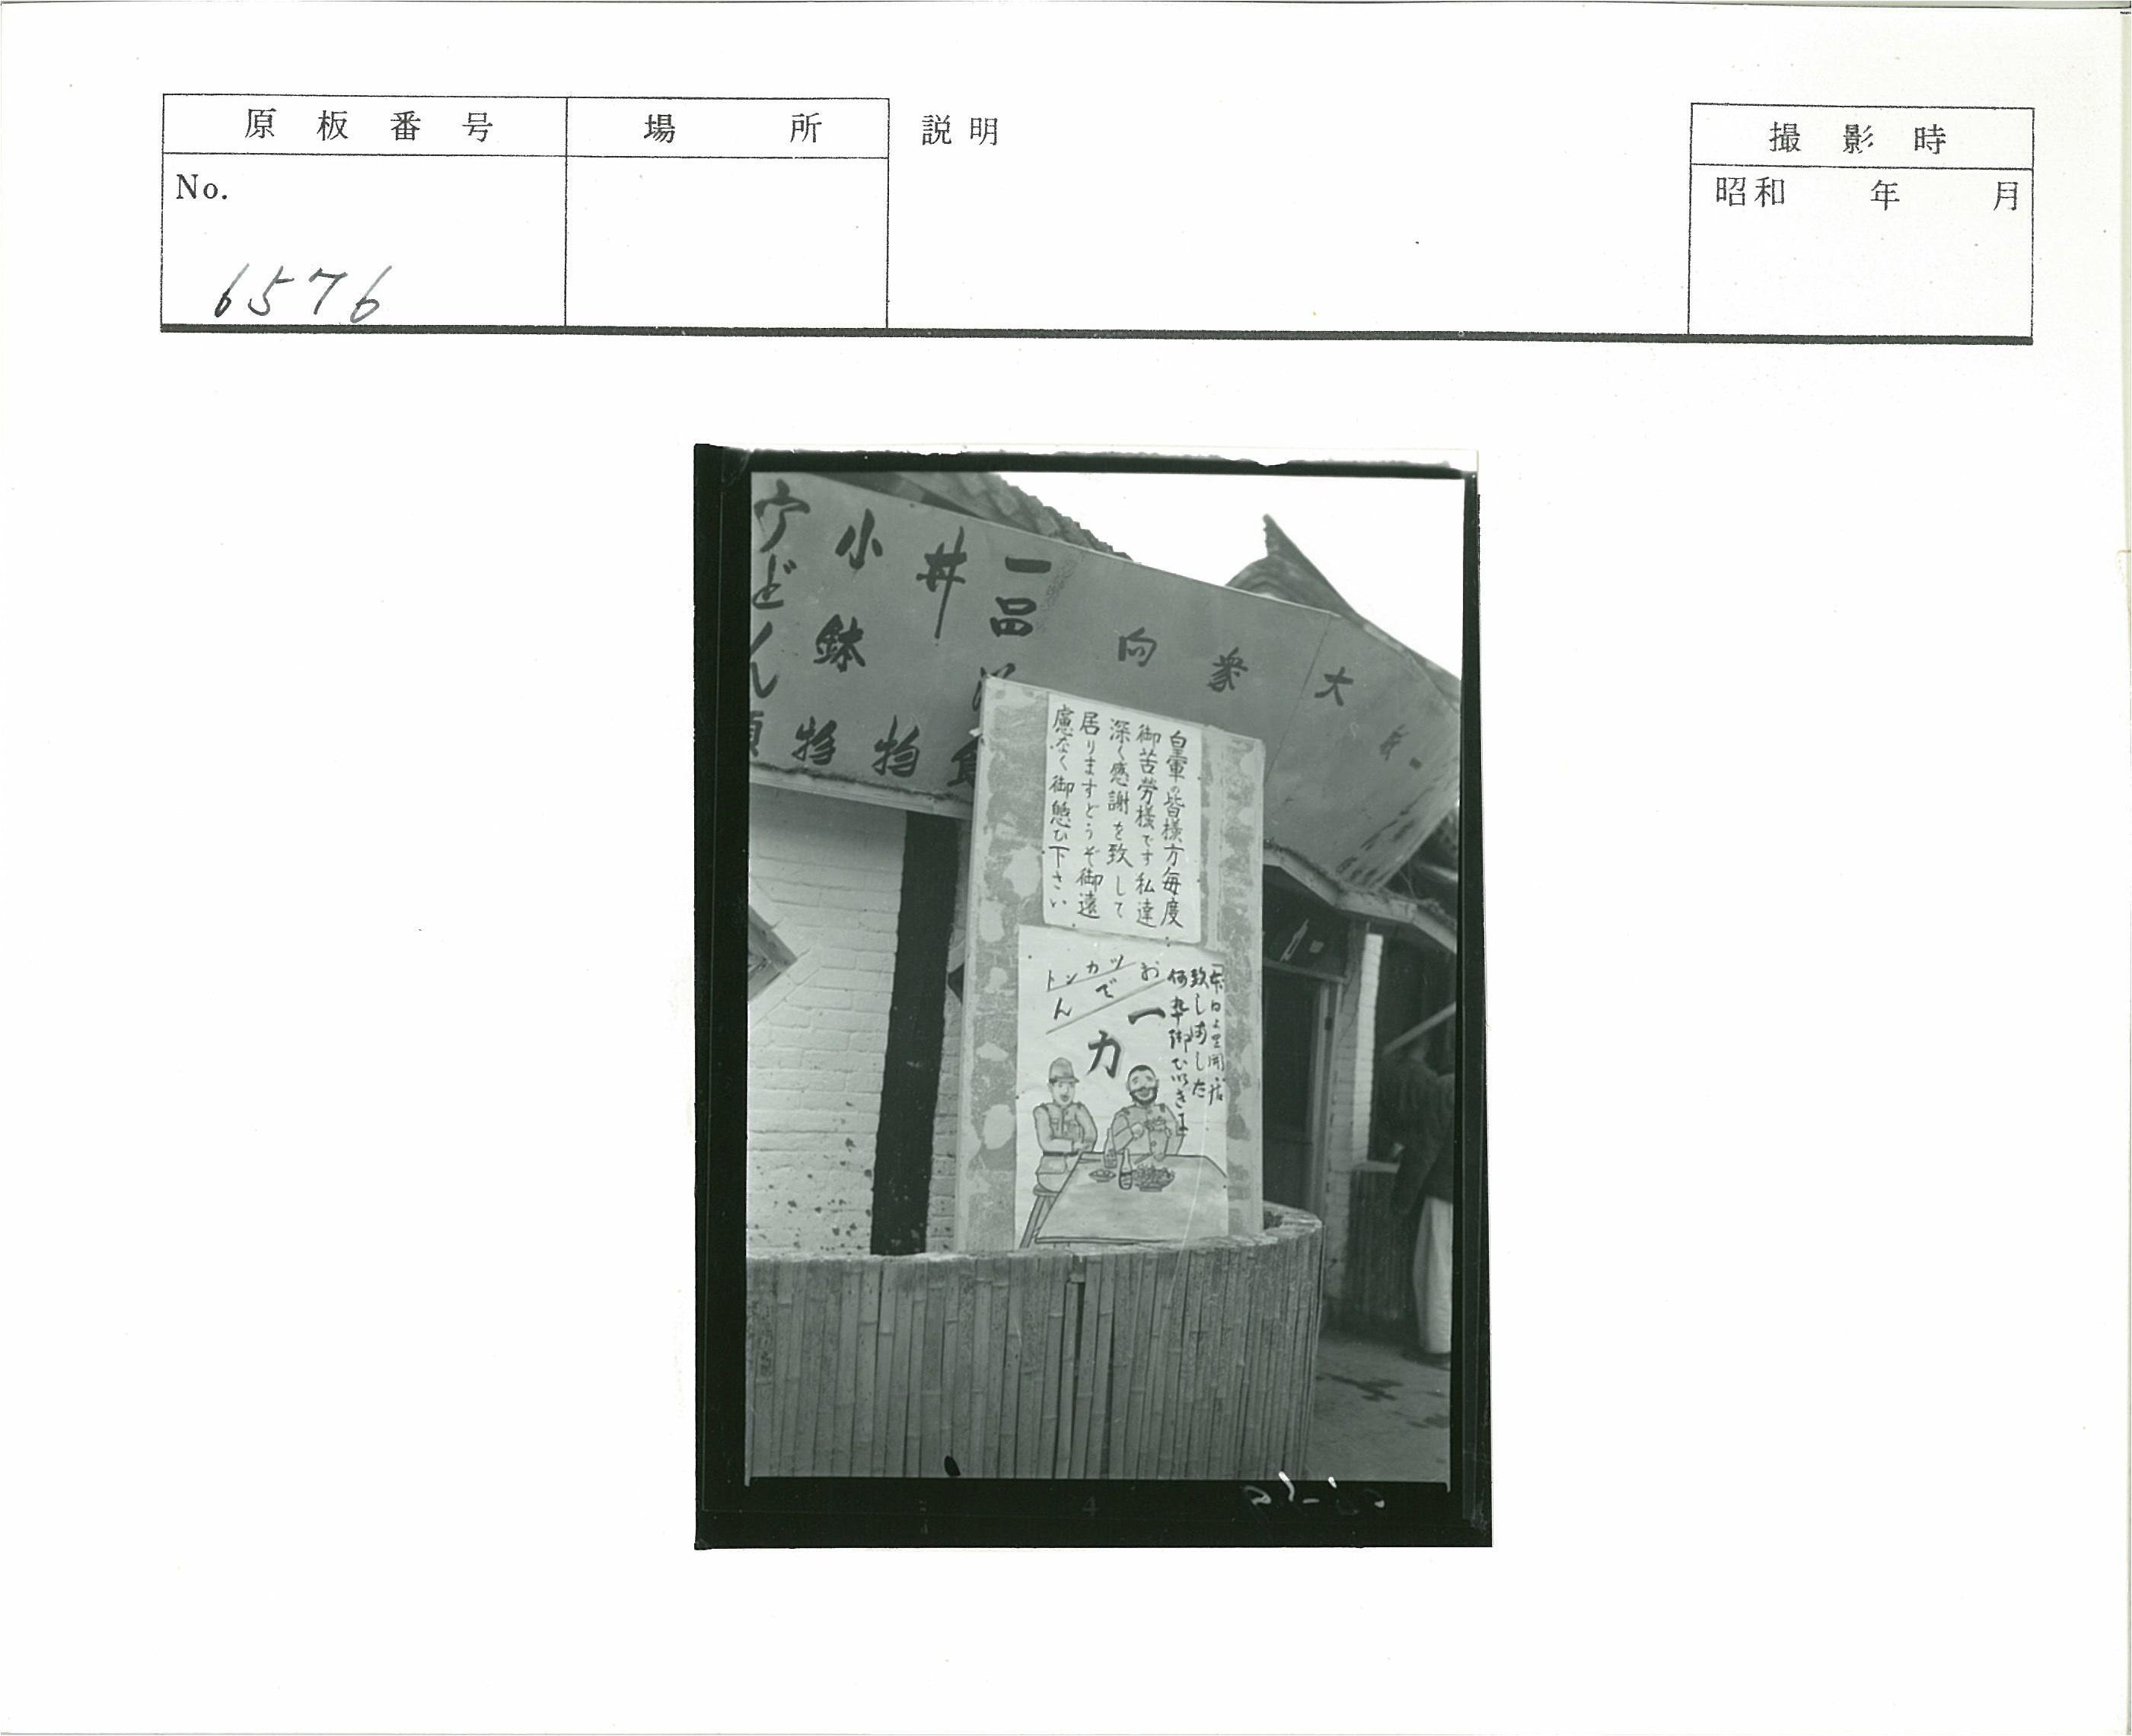 原板番号
場所
説明
撮影時
No.
6576
昭和 年 月
大衆向
一品
丼物
小鉢物
うどん
皇軍の皆様方毎度
御苦労様です私達
深く感謝を致して
居りますどうぞ御遠
慮なく御憩ひ下さい
本日より開店
致しました
何卒御ひいきを
おでん
トンカツ
一力